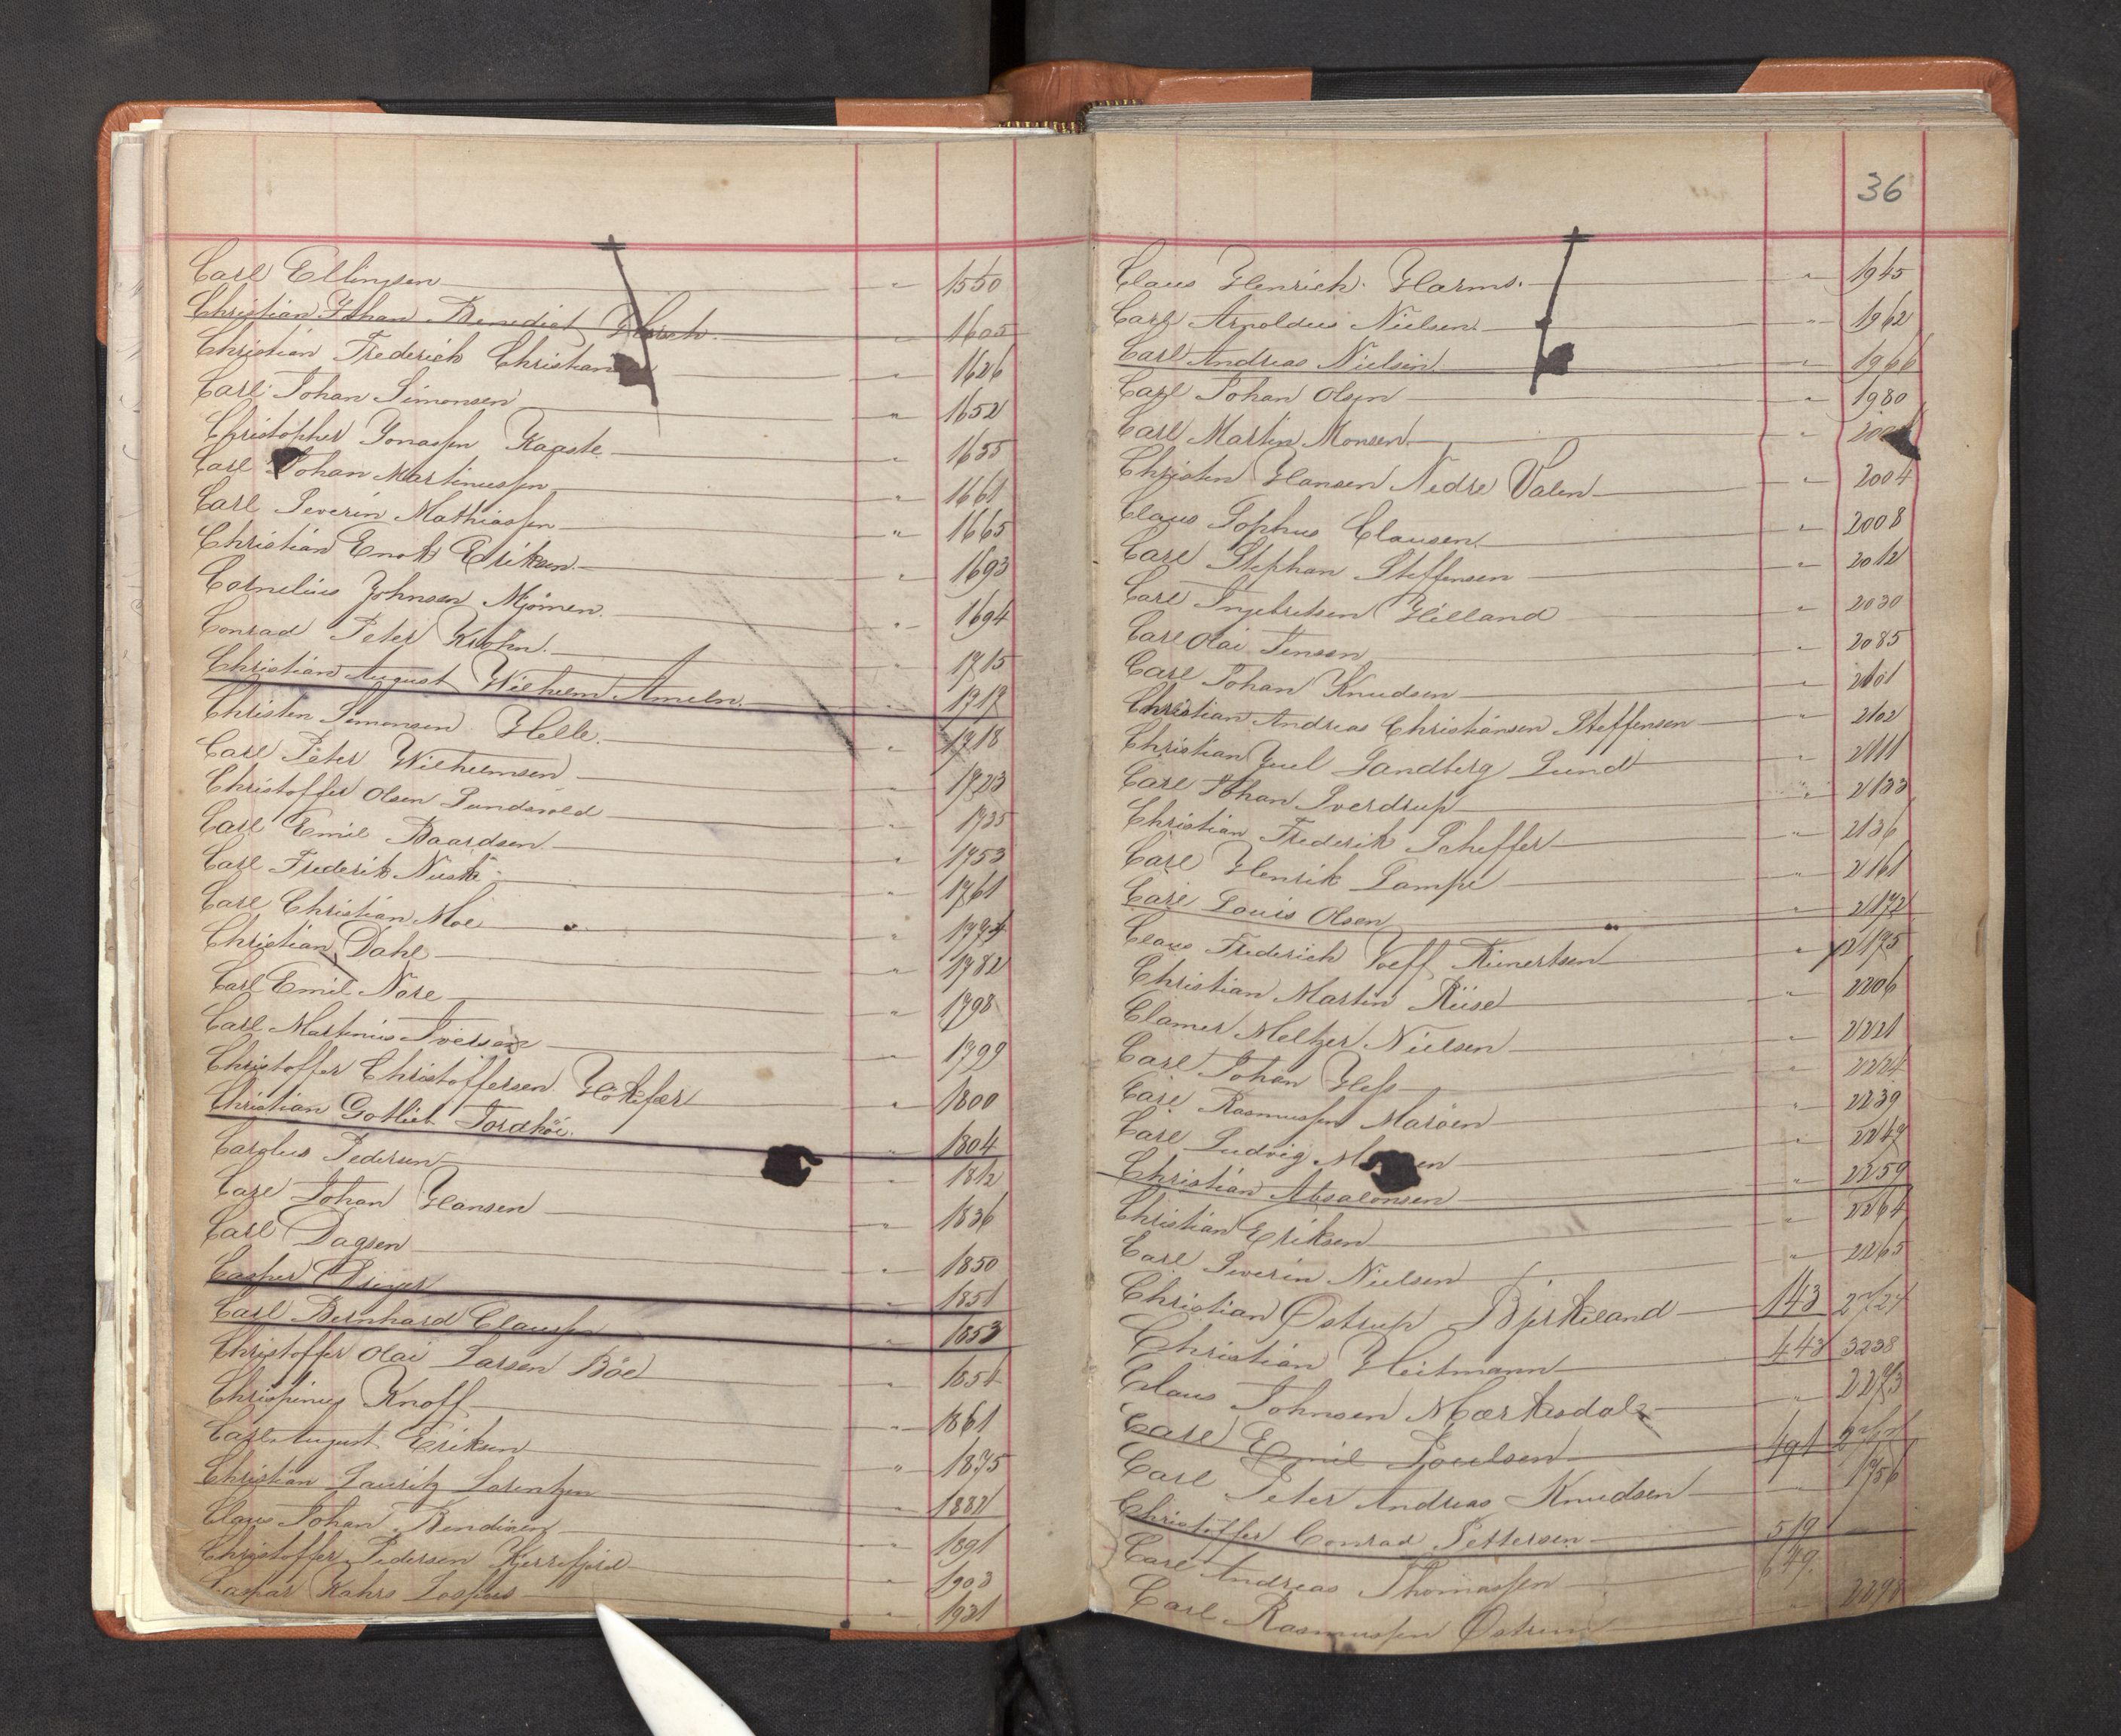 Carl Ellingsen " 1550
Christian Johan Benedict " 1605
Christian Frederich " 1626
Carl Johan Simonsen " 1652
Christopher Jonassen Kaaste " 1655
Carl Johan Martinussen " 1661
Carl Severin Mathiassen " 1665
Christian Enok Eriksen " 1693
Cornelius Johnsen Mjömen " 1694
Conrad Peter Krohn " 1715
Christian August Wilhelm Ameln " 1717
Christen Simonsen Helle " 1718
Carl Peter Wilhelmsen " 1723
Christoffer Olsen Sundsvold " 1735
Carl Emil Baardsen " 1753
Carl Frederik " 1761
Carl Christian Moe " 1774
Christian Dahl " 1782
Carl Emil Nore " 1798
Carl Martinius Iversen " 1799
Christoffer Christoffersen " 1800
Christian Gotlieb " 1804
Carolus Pedersen " 1812
Carl Johan Hansen " 1836
Carl Dagsen " 1850
Casper Dreyer " 1851
Carl Bernhard Claussen " 1853
Christoffer Olai Larsen Böe " 1854
Chrispinus Knoff " 1861
Carl August Eriksen " 1875
Christian Lauritz Lorentzen " 1882
Claus Johan Bendixen " 1891
Christoffer Pedersen " 1903
Caspar Kahrs " 1921
36
Claus Henrich Harms " 1945
Carl Arnoldus Nielsen " 1962
Carl Andreas Nielsen " 1966
Carl Johan Olsen " 1980
Carl Martin Monsen "
Christen Hansen Nedre Valen " 2004
Claus Sophus Clausen " 2008
Carl Stephan Steffensen " 2012
Carl Ingebretsen Hilland " 2030
Carl Olai Jensen " 2085
Carl Johan Knudsen " 2101
Christian Andreas Christiansen Steffensen " 2102
Christian Juul Sandberg Lund " 2111
Carl Johan Sverdrup " 2133
Christian Frederik Scheffer " 2136
Carl Henrik Lampe " 2161
Carl Louis Olsen " 2172
Claus Frederich Reinertsen " 2195
Christian Martin Riise " 2206
Clamer Meltzer Nielsen " 2221
Carl Johan Hess " 2224
Carl Rasmussen Maröen " 2239
Carl Ludvig " 2247
Christian Absalonsen " 2259
Christian Eriksen " 2264
Carl Severin Nielsen " 2265
Christian Østrup Bjerkeland 143 2724
Christian Heitmann 443 3238
Claus Johnsen Mærkesdal " 2273
Carl Emil Poulsen 491
Carl Peter Andreas Knudsen " 1756
Christoffer Conrad Pettersen 519
Carl Andreas Thomassen 679
Carl Rasmussen " 2298